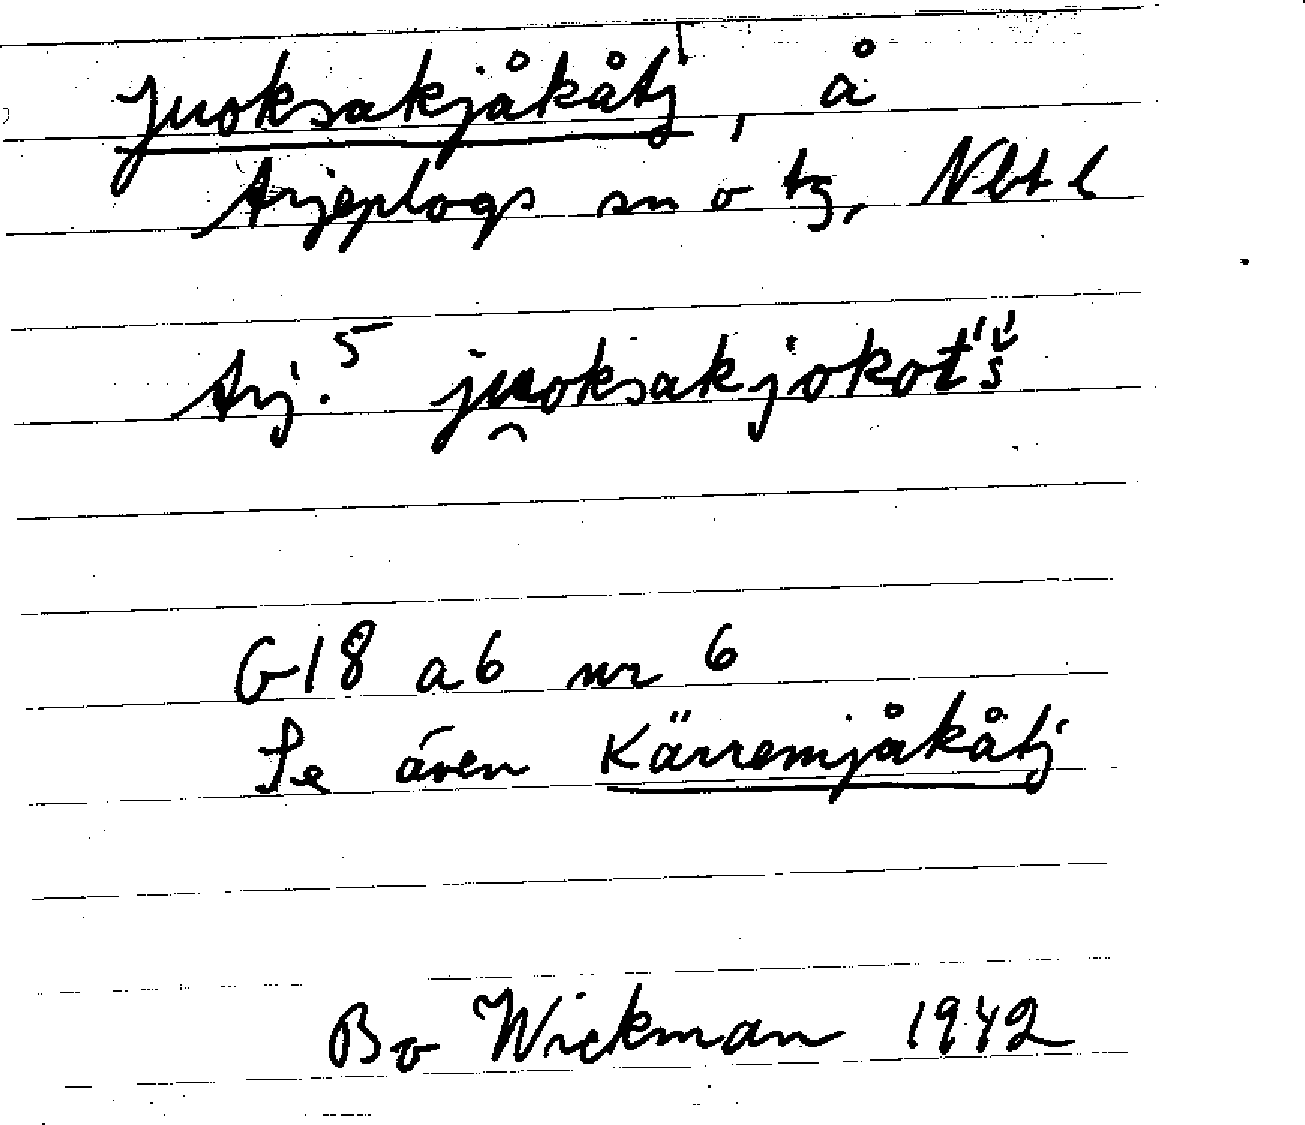 Juoksakjåkåtj, å
Arjeplogs sn o tg, Nbt l
Arj.⁵ ju̯oksakjokot́'š́
G18 a6 nr 6
Se även Kärremjåkåtj
Bo Wickman 1942